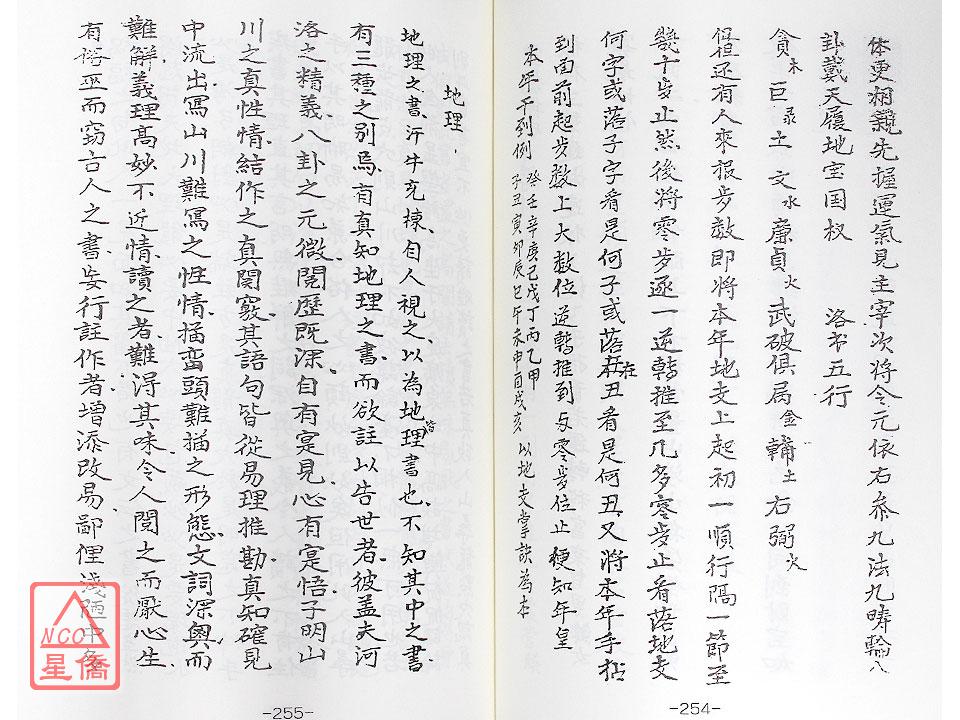 体更相親先握運氣見主宰次將令元依右叅九法九疇輪八
卦戴天履地宝国权 洛书五行
貪木 巨彔土 文水 廉貞火 武破俱局金 輔土 右弼火
徑还有人來报步数即將本年地支上起初一順行隔一節至
幾十步止然後將零步逐一逆轉推至几多零步止看落地支
何字或落子字看是何子或落在丑看是何丑又將本年手拈
到面前起步数上大数位逆轉推到与零步位止便知年皇
本年干到例 癸壬辛庚己戊丁丙乙甲
子丑寅卯辰巳午未申酉戌亥 以地支掌訣為本
-254-
地理
地理之書汗牛充棟自人視之以為地理書也不知其中之書皆
有三種之別焉有真知地理之書而欲註以告世者彼盖夫河
洛之精義八卦之元微閱歷既深自有寔見心有寔悟子明山
川之真性情結作之真関竅其語句皆從易理推勘真知確見
中流出寫山川難寫之性情描巒頭難描之形態文詞深奧而
難解義理高妙不近情讀之者難得其味令人閱之而厭心生
有俗巫而竊古人之書妄行註作者增添改易鄙俚淺陋中多
-255-
NCC
星僑